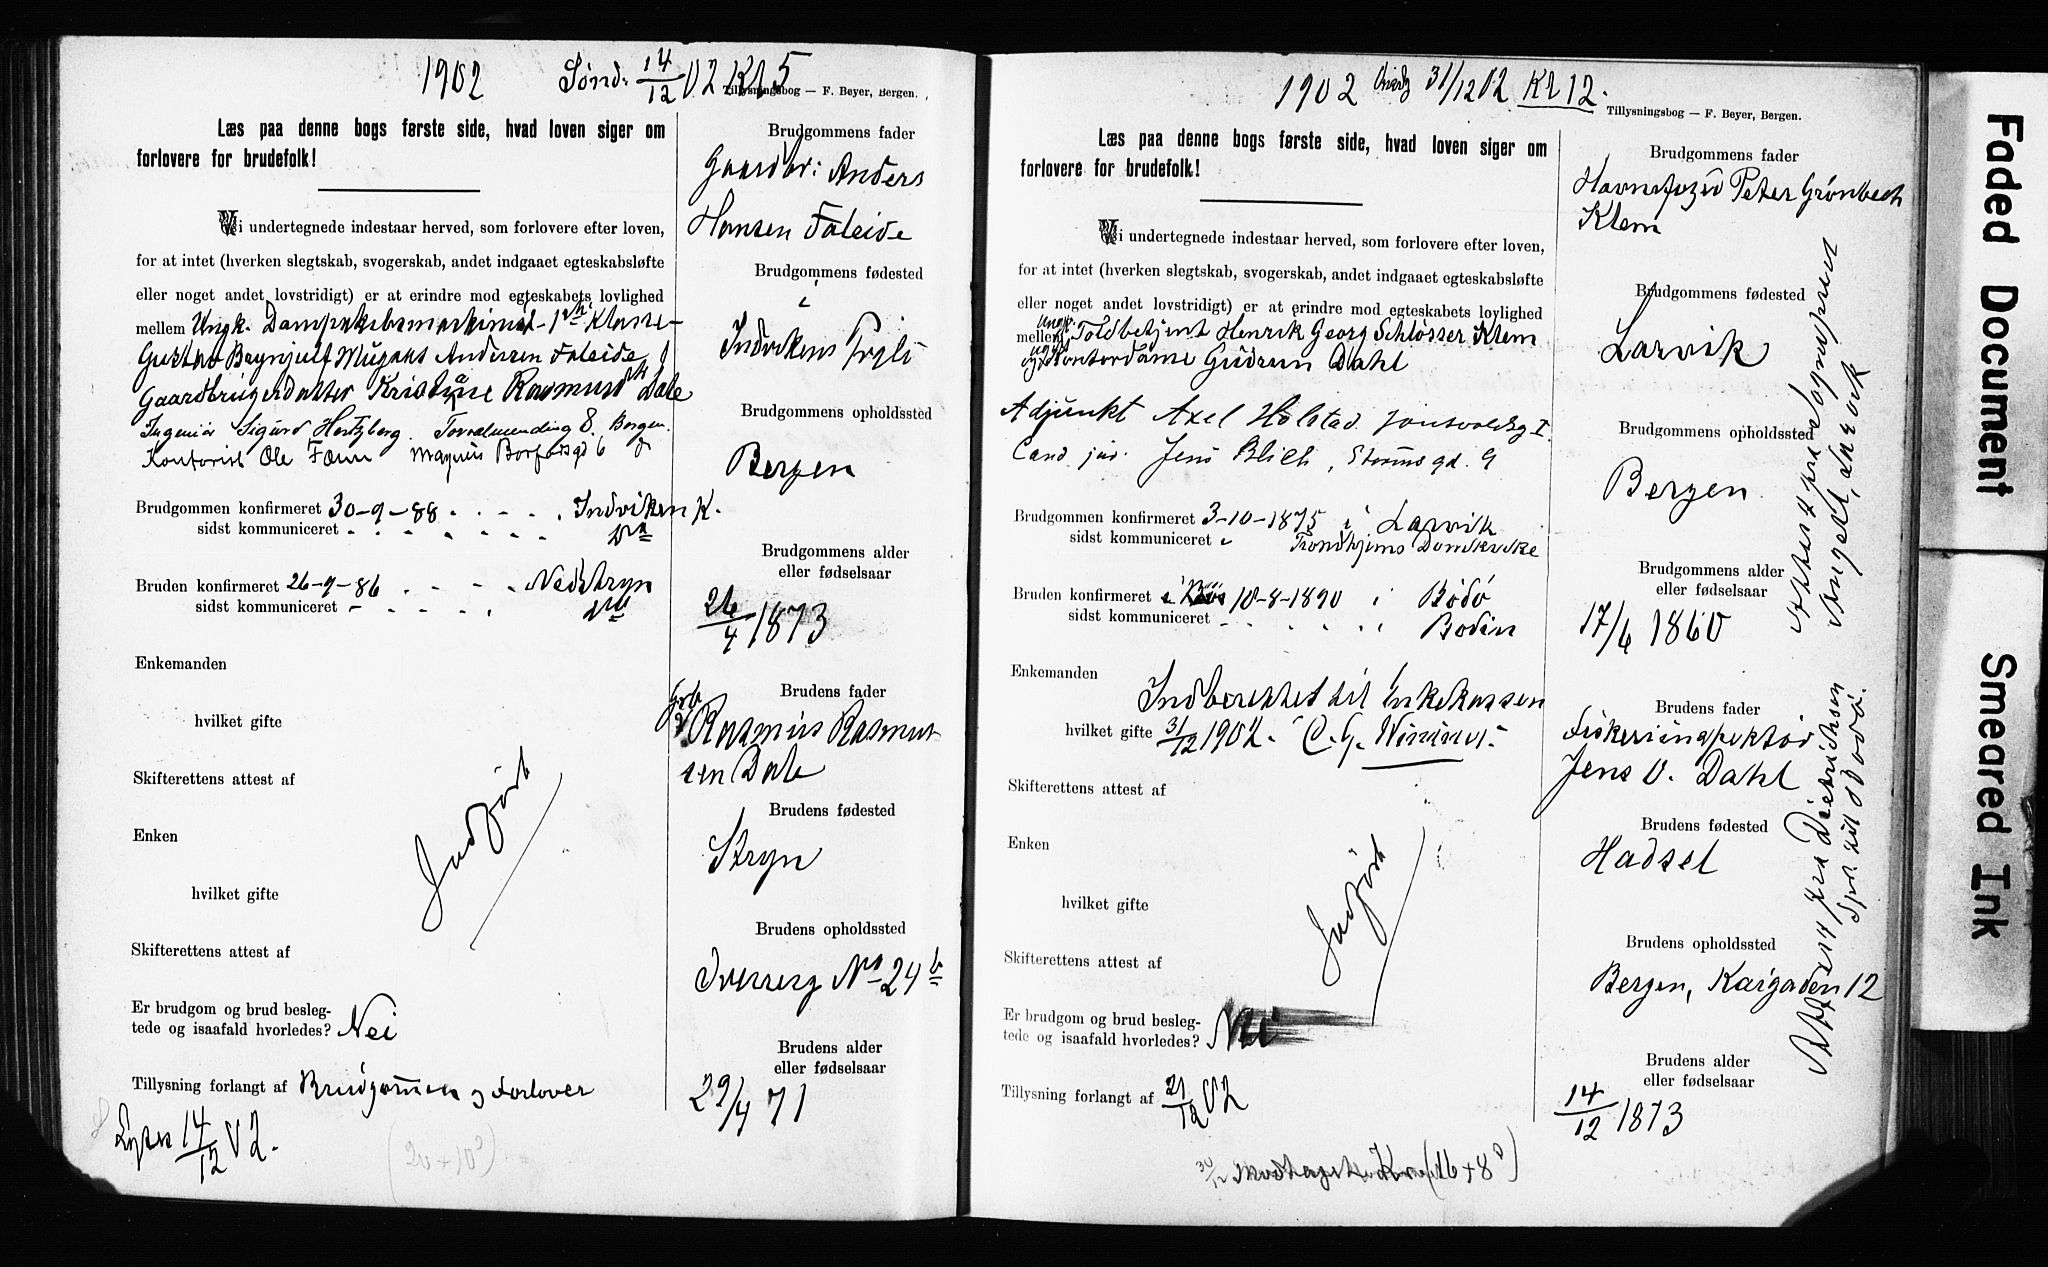 1902 Sønd: 14/12 02 Kl 5
Tillysningsbog — F. Beyer, Bergen.
Læs paa denne bogs første side, hvad loven siger om
forlovere for brudefolk!
Vi undertegnede indestaar herved, som forlovere efter loven,
for at intet (hverken slegtskab, svogerskab, andet indgaaet egteskabsløfte
eller noget andet lovstridigt) er at erindre mod egteskabets lovlighed
mellem Ungk. Dampskibsmaskinist 1ste Klasse
Gustav Brynjulf Andersen Faleide
Gaardbrugerdatter Rasmusdtr Dale
Ingeniør Sigurd Hertzberg. Torvalmending 8. Bergen.
Kontorist Ole Magnus Barfodsgd 6 do
Brudgommen konfirmeret 30-9-88 . . . . . Indviken K.
sidst kommuniceret . . . . . . .
Bruden konfirmeret 26-9-86 . . . Nedstryn
sidst kommuniceret
Enkemanden
hvilket gifte
Skifterettens attest af
Enken
hvilket gifte
Skifterettens attest af
Indført
Er brudgom og brud besleg-
tede og isaafald hvorledes? Nei
Tillysning forlangt af Brudgommen og Forlover
Lyses 14/12 02.
(20 + 10)
Brudgommens fader
Gaardbr: Anders
Hansen Faleide
Brudgommens fødested
i
Indvikens Prgld
Brudgommens opholdssted
Bergen
Brudgommens alder
eller fødselsaar
26/4 1873
Brudens fader
Grb
Rasmus Rasmus
sen Dale
Brudens fødested
Stryn
Brudens opholdssted
No 24 b
Brudens alder
eller fødselsaar
29/4 71
1902 Onsdg 31/12 02 Kl 12.
Tillysningsbog — F. Beyer, Bergen.
Læs paa denne bogs første side, hvad loven siger om
forlovere for brudefolk!
Vi undertegnede indestaar herved, som forlovere efter loven,
for at intet (hverken slegtskab, svogerskab, andet indgaaet egteskabsløfte
eller noget andet lovstridigt) er at erindre mod egteskabets lovlighed
mellem Ungk. Toldbetjent Henrik Georg Schlösser Klem
og Kontordame Gudrun Dahl
Adjunkt Axel Holstad
Cand jur. Jens Blich, Stormsgd. 9
Brudgommen konfirmeret 3-10-1875 i Larvik
sidst kommuniceret i Trondhjems Domkirke
Bruden konfirmeret 10-8-1890 i Bodø
sidst kommuniceret . . . . . Bodin
Enkemanden Indberettet til Enkekassen
hvilket gifte 31/12 1902.
Skifterettens attest af
Enken
hvilket gifte
Skifterettens attest af
Indført
Er brudgom og brud besleg-
tede og isaafald hvorledes? Nei
Tillysning forlangt af 21/12 02
30/12 Modtaget Kr (16+8)
Brudgommens fader
Havnefoged Peter Grønbech
Klem
Brudgommens fødested
Larvik
Brudgommens opholdssted
Bergen
Brudgommens alder
eller fødselsaar
17/6 1860
Brudens fader
Fiskeriinspektør
Jens O. Dahl
Brudens fødested
Hadsel
Brudens opholdssted
Bergen, Kaigaden 12
Brudens alder
eller fødselsaar
14/12 1873
Attest fra Sognepræst
Angell, Larvik
Attest fra Diedrichsen
Faded Document
Smeared Ink